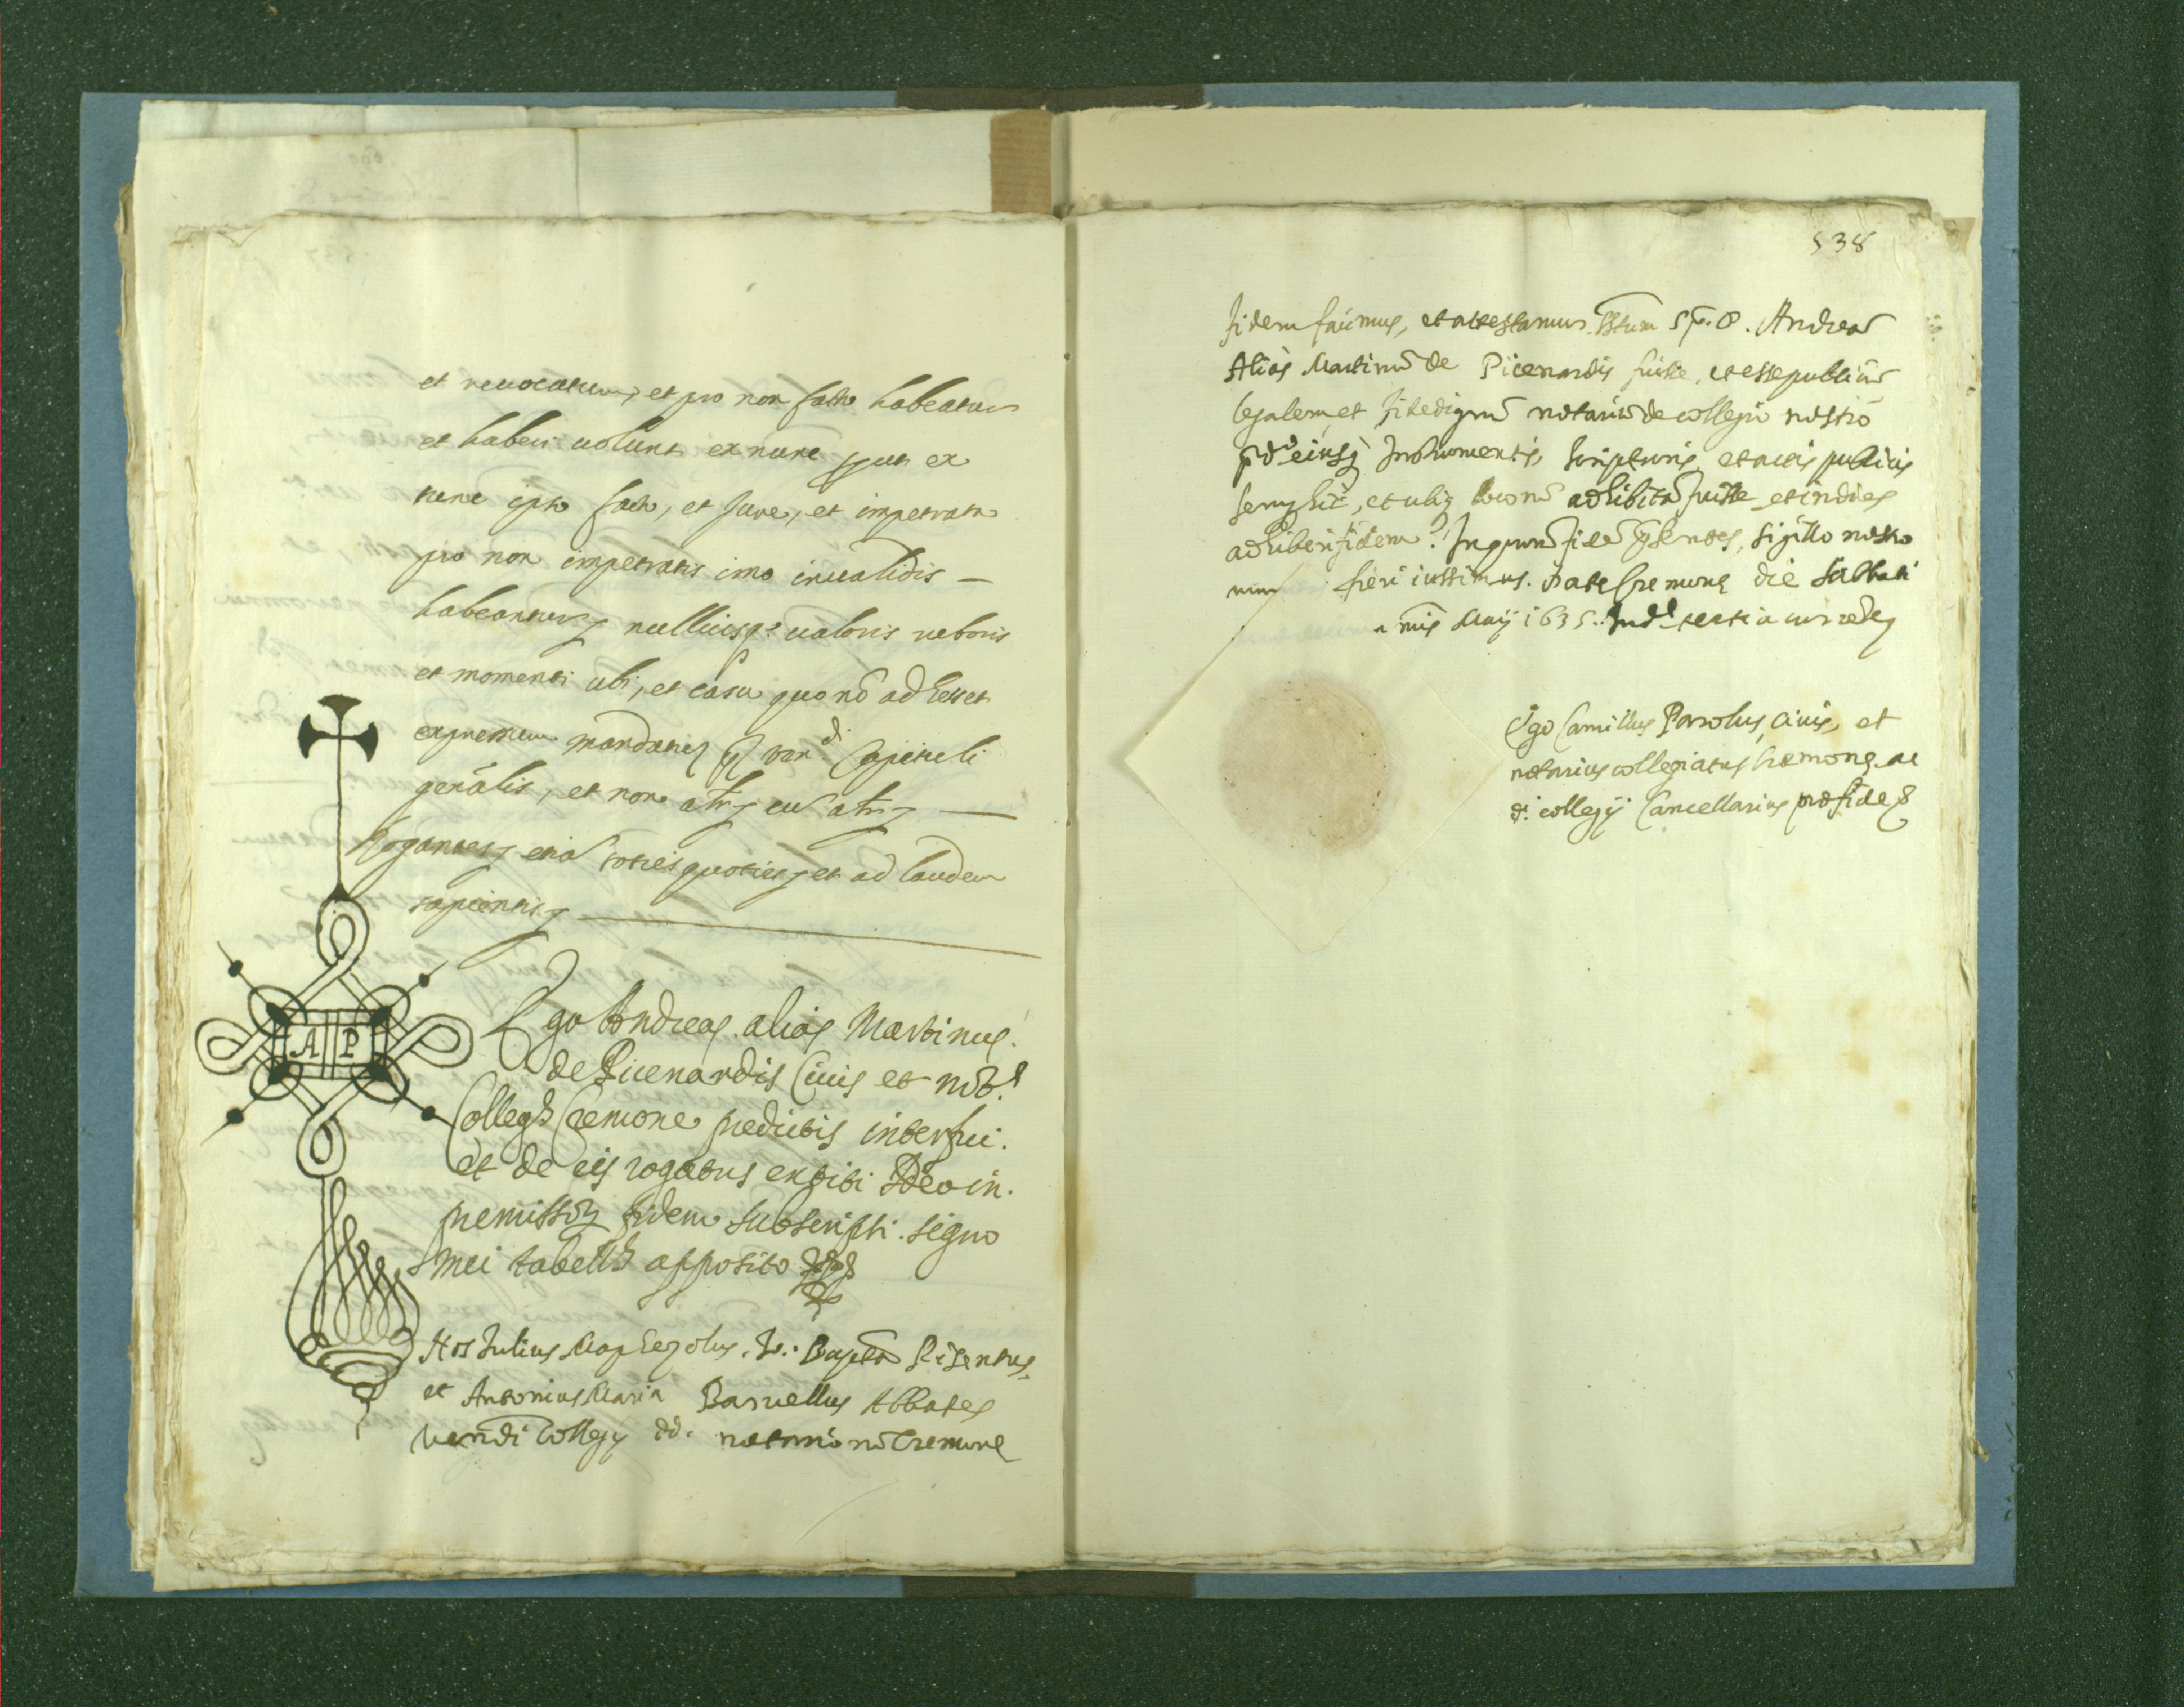 et reuocatum, et pro non facto habeatur
et haberi uolunt ex nunc prout ex
tunc ipso facto, et Jure, et impetrata
pro non impetratis imo inualidis –
habeantur, nulliusq: ualoris roboris
et momenti ubi, et casu quo nō adesset
expressum mandatum Ven.di Capituli
genālis, et non alr eū alr —
Rogantes etiā toties quoties et ad laudem
sapientis
A P
Ego Andreas alias Martinus
de Picenardis Ciuis et not.s
Colleg.s Cremone predictis interfui.
et de eis rogatus extiti Ideo in.
premissor fidem subscripsi. signo
mei tabell.s apposito
Nos Julius Io: Bapta
et Antonius Maria Baruellus Abbates
Venndi Collegij dd. notariorū Cremone
538
fidem facimus, et attestamur sstum Sp. D. Andreā
Alias Martinū de Picenardis fuisse, et esse publicū
legalem, et fidedignū notariū de collegio nostro
pdo eiusq Instrumentis, scripturis, et actis publicis
semp hic, et ubiq locorū adhibitā fuisse, et indies
adhiberi fidem. In quorū fidē pñtes, sigillo nostro
fieri iussimus. Dat Cremone die Sabbati
Maij 1635. Indne tertia
Ego Camillus Parolus, ciuis, et
notarius collegiatus Cremone, ac
di. collegij Cancellarius pro fide